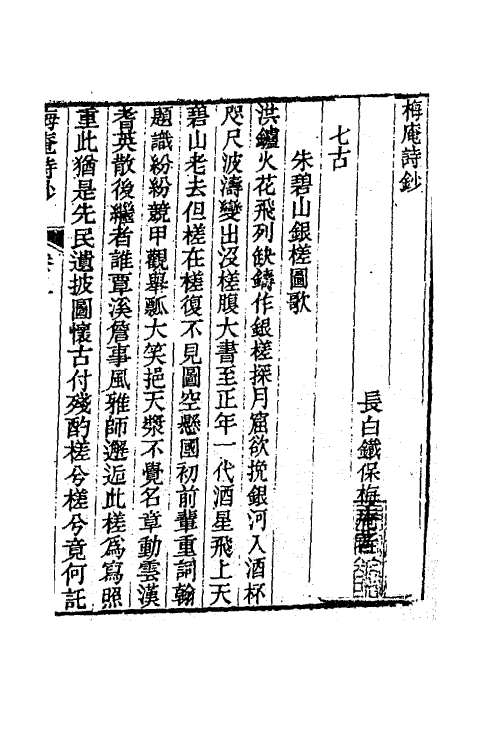 梅庵詩鈔
長白鐵保梅庵著
七古
朱碧山銀槎圖歌
洪鑪火花飛列缺鑄作銀槎探月窟欲挽銀河入酒杯
咫尺波濤變出沒槎腹大書至正年一代酒星飛上天
碧山老去但槎在槎復不見圖空懸國初前輩重詞翰
題識紛紛競甲觀舉瓢大笑挹天漿不覺名章動雲漢
耆英散後繼者誰覃溪詹事風雅師邂逅此槎為寫照
重此猶是先民遺披圖懷古付殘酌槎兮槎兮竟何託
梅庵詩鈔 卷一